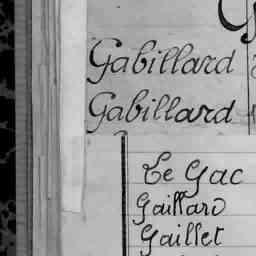 Gabillard
Gabillard
Le Gac
Gaillard
Gaillet